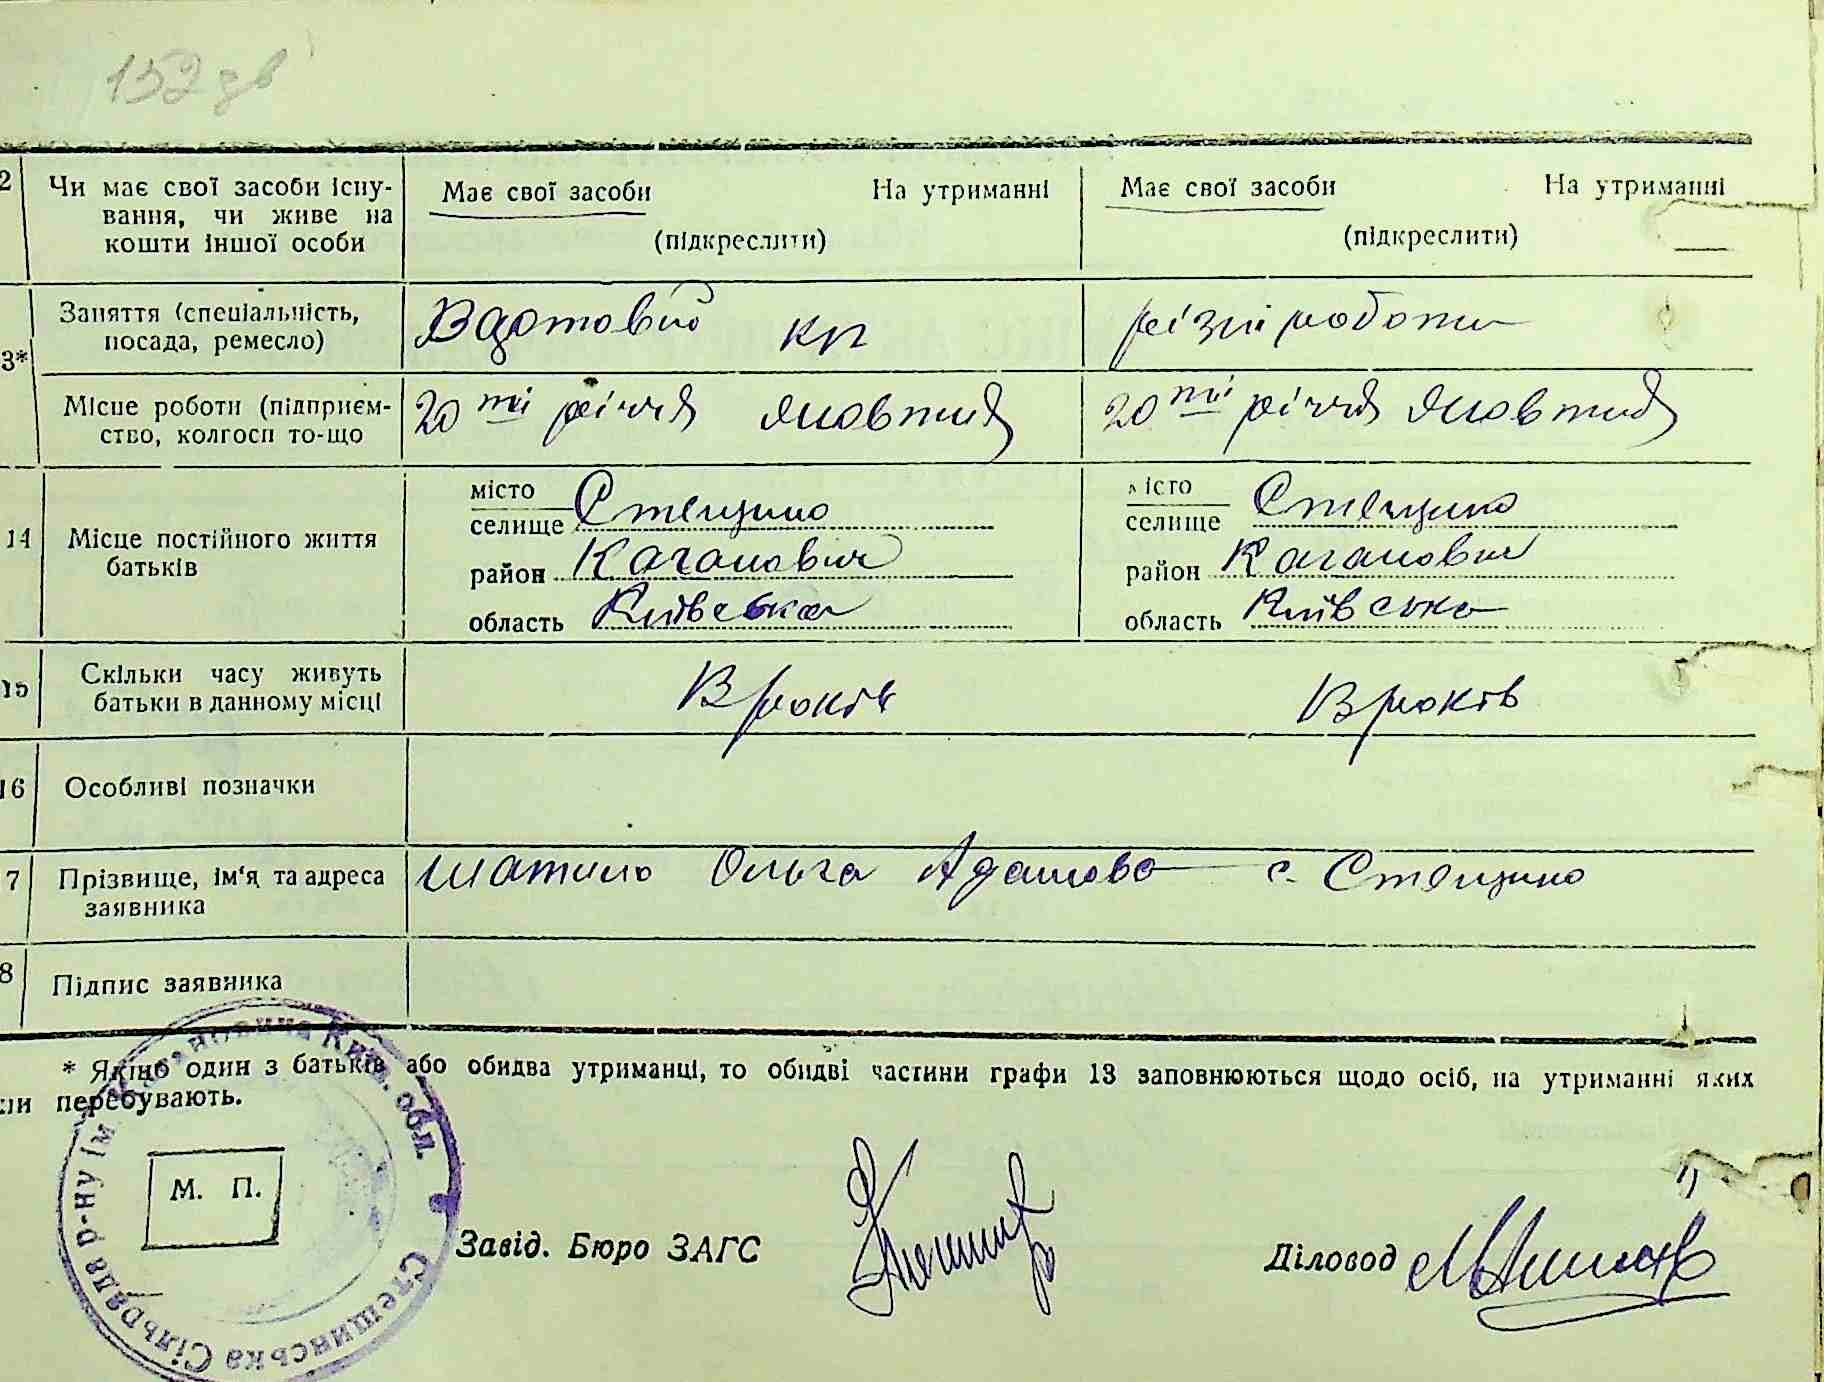 152 зв
2 Чи має свої засоби існу- Має свої засоби На утриманні Має свої засоби На утриманні
вання, чи живе на
кошти іншої особи (підкреслити) (підкреслити)
Заняття (спеціальність, кп різні роботи
посада, ремесло)
3*
Місце роботи (підприєм- 20 ті річчя Жовтня 20 ті річчя Жовтня
ство, колгосп то-що
14 Місце постійного життя
батьків
місто Стещино місто Стещино
селище селище
район Каганович район Каганович
область Київська область Київська
15 Скільки часу живуть В років В років
батьки в данному місці
16 Особливі позначки
7 Прізвище, ім'я та адреса Шатило Ольга Адамова с. Стещино
заявника
8 Підпис заявника
* Якщо один з батьків або обидва утриманці, то обидві частини графи 13 заповнюються щодо осіб, на утриманні яких
ли перебувають.
Стещинська Сільрада р-ну ім. Кагановича Київ. обл.
М. П.
Завід. Бюро ЗАГС
Діловод